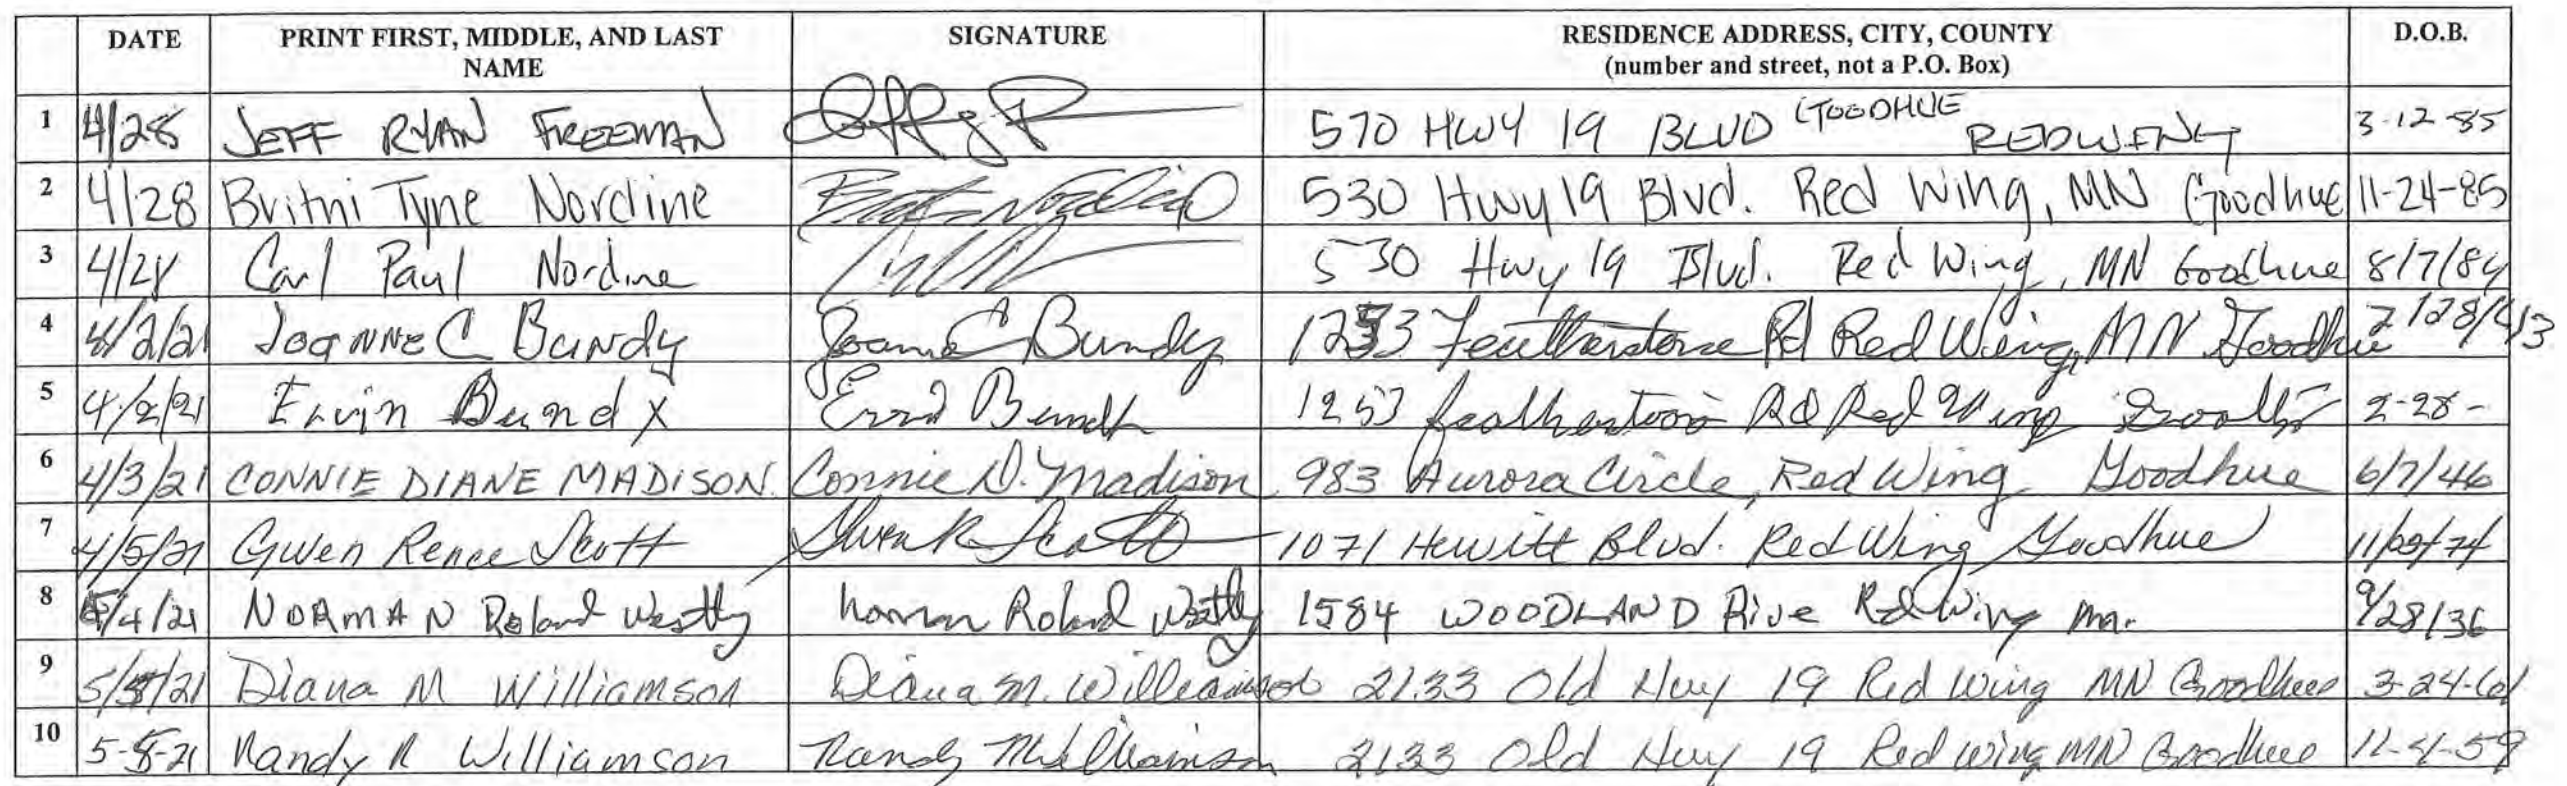 DATE PRINT FIRST, MIDDLE, AND LAST NAME SIGNATURE RESIDENCE ADDRESS, CITY, COUNTY (number and street, not a P.O. Box) D.O.B.
1 4/28 JEFF RYAN FREEMAN 570 HWY 19 BLVD GOODHUE REDWING 3-12-85
2 4/28 Britni Tyne Nordine 530 Hwy 19 Blvd. Red Wing, MN Goodhue 11-24-85
3 4/28 Carl Paul Nordine 530 Hwy 19 Blvd. Red Wing, MN Goodhue 8/7/84
4 4/2/21 Joanne C Bundy Joanne C Bundy 1253 Featherstone Rd Red Wing, MN Goodhue 2/28/43
5 4/2/21 Ervin Bundy Ervin Bundy 1253 featherstone Rd Red Wing Goodhue 2-28-
6 4/3/21 CONNIE DIANE MADISON Connie D. Madison 983 Aurora Circle, Red Wing Goodhue 6/7/46
7 4/5/21 Gwen Renee Scott Gwen R Scott 1071 Hewitt Blvd. Red Wing Goodhue 11/ /74
8 /4/21 NORMAN Roland Westly Norman Roland Westly 1584 WOODLAND Drive Red Wing Mn. 9/28/36
9 5/ /21 Diana M Williamson Diana M. Williamson 2133 Old Hwy 19 Red Wing MN Goodhue 3-24-61
10 5-8-21 Randy R Williamson Randy Williamson 2133 Old Hwy 19 Red Wing MN Goodhue 11-4-59